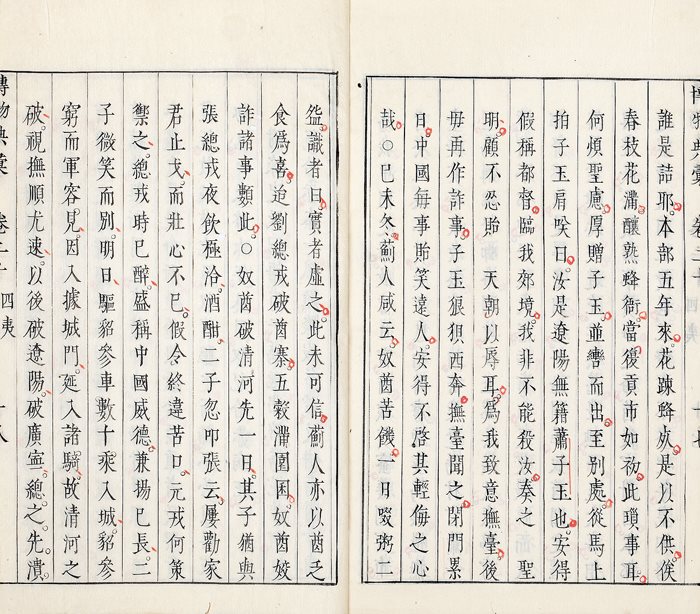 博物典彙 卷二十 四夷 十七
誰是詰耶本部五年來花踈蜂
春枝花滿釀熟蜂衙當復貢市如初此瑣事耳
何煩聖慮厚贈子玉並轡而出至別處從馬上
拍子玉肩唉曰汝是遼陽無籍蕭子玉也安得
假稱都督臨我郊境我非不能殺汝奏之 聖
明顧不忍貽 天朝以辱耳爲我致意撫臺後
毋再作詐事子玉狼狽西奔撫臺聞之閉門累
日中國每事貽笑遠人安得不啓其輕侮之心
哉○巳未冬薊人咸云奴酋苦饑一日啜粥二
飡識者曰實者虛之此未可信薊人亦以酋乏
食爲喜迨劉總戎破酋寨五穀滿囷囷奴酋狡
詐諸事類此○奴酋破清河先一日其子猶與
張總戎夜飲極洽酒酣二子忽叩張云屢勸家
君止戈而壯心不已假令終違苦口元戎何策
禦之總戎時巳醉盛稱中國威德兼揚巳長二
子微笑而別明日驅貂參車數十乘入城貂參
窮而軍容見因入據城門延入諸騎故清河之
破視撫順尤速以後破遼陽破廣寧總之先潰
博物典彙 卷二十 四夷 十八